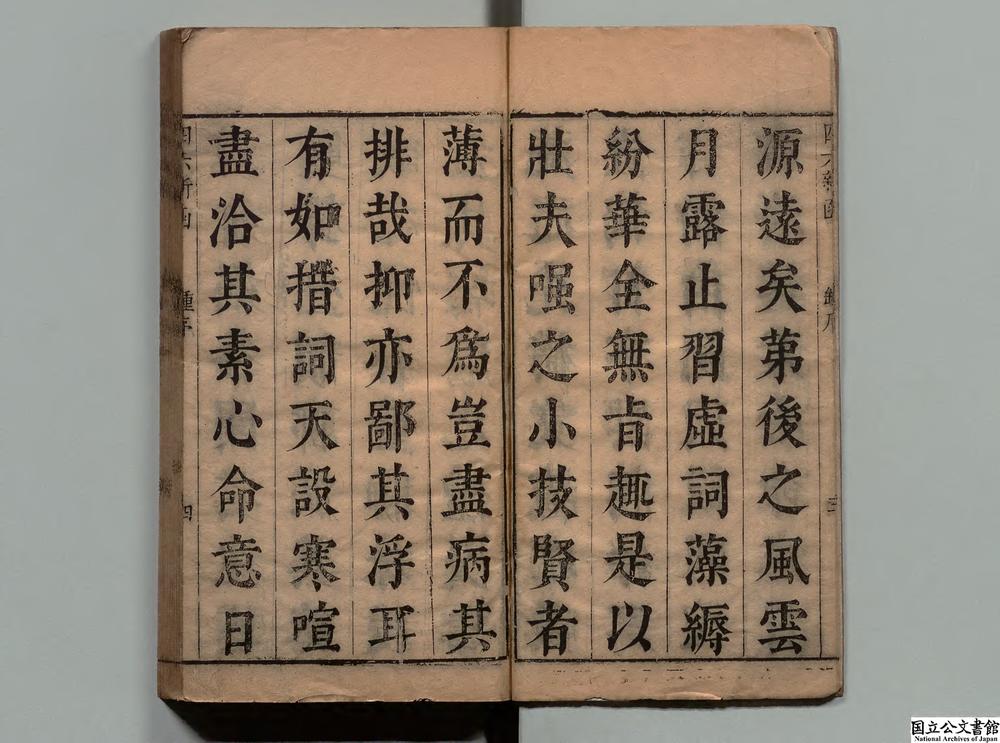 源遠矣苐後之風雲
月露止習虛詞藻縟
紛華全無㫖趣是以
壯夫嗤之小技賢者
薄而不爲豈盡病其
排哉抑亦鄙其浮耳
有如措詞天設寒喧
盡洽其素心命意日
四六新函
鍾序
四
国立公文書館
National Archives of Japan